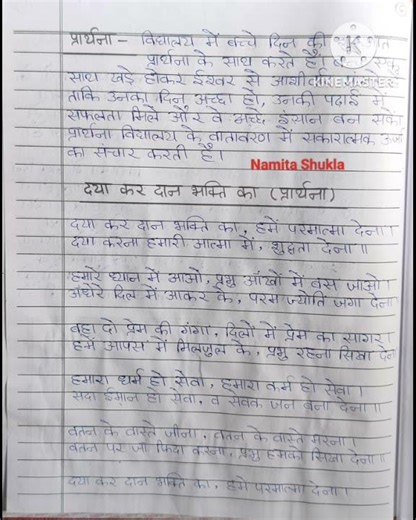 प्रार्थना – विद्यालय में बच्चे दिन की
प्रार्थना के साथ करते हैं।
साथ खड़े होकर ईश्वर से
ताकि उनका दिन अच्छा हो, उनकी पढ़ाई में
सफलता मिले और वे अच्छे इंसान बन सकें
प्रार्थना विद्यालय के वातावरण में सकारात्मक ऊर्जा
का संचार करती है।
Namita Shukla
दया कर दान भक्ति का (प्रार्थना)
दया कर दान भक्ति का, हमें परमात्मा देना।
दया करना हमारी आत्मा में, शुद्धता देना॥
हमारे ध्यान में आओ, प्रभु आँखों में बस जाओ।
अंधेरे दिल में आकर के, परम ज्योति जगा देना
बहा दो प्रेम की गंगा, दिलों में प्रेम का सागर
हमें आपस में मिलजुल के, प्रभु रहना सिखा देना
हमारा धर्म हो सेवा, हमारा कर्म हो सेवा।
सदा ईमान हो सेवा, व सेवक जन बना देना॥
वतन के वास्ते जीना, वतन के वास्ते मरना।
वतन पर जां फिदा करना, प्रभु हमको सिखा देना॥
दया कर दान भक्ति का, हमें परमात्मा देना।